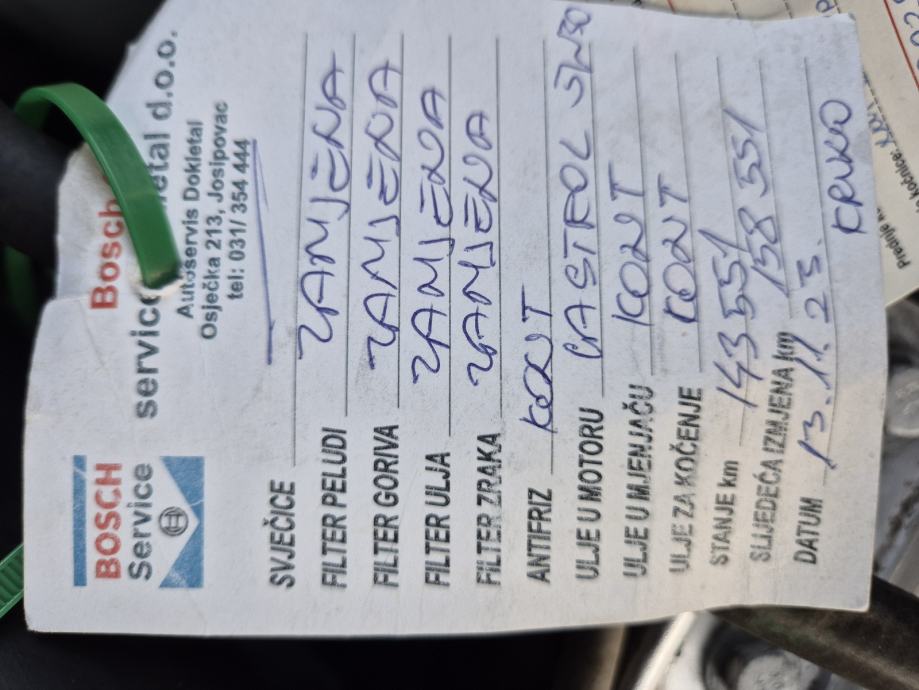 BOSCH
Service
Bosch
service
etal d.o.o.
Autoservis Dokletal
Osječka 213, Josipovac
tel: 031/ 354 444
SVJEČICE
FILTER PELUDI ZAMJENA
FILTER GORIVA ZAMJENA
FILTER ULJA ZAMJENA
FILTER ZRAKA ZAMJENA
ANTIFRIZ KONT
ULJE U MOTORU CASTROL 5W30
ULJE U MJENJAČU KONT
ULJE ZA KOČENJE KONT
STANJE km 143 551
SLIJEDEĆA IZMJENA km 158 551
DATUM 13.11.23. KRUNO